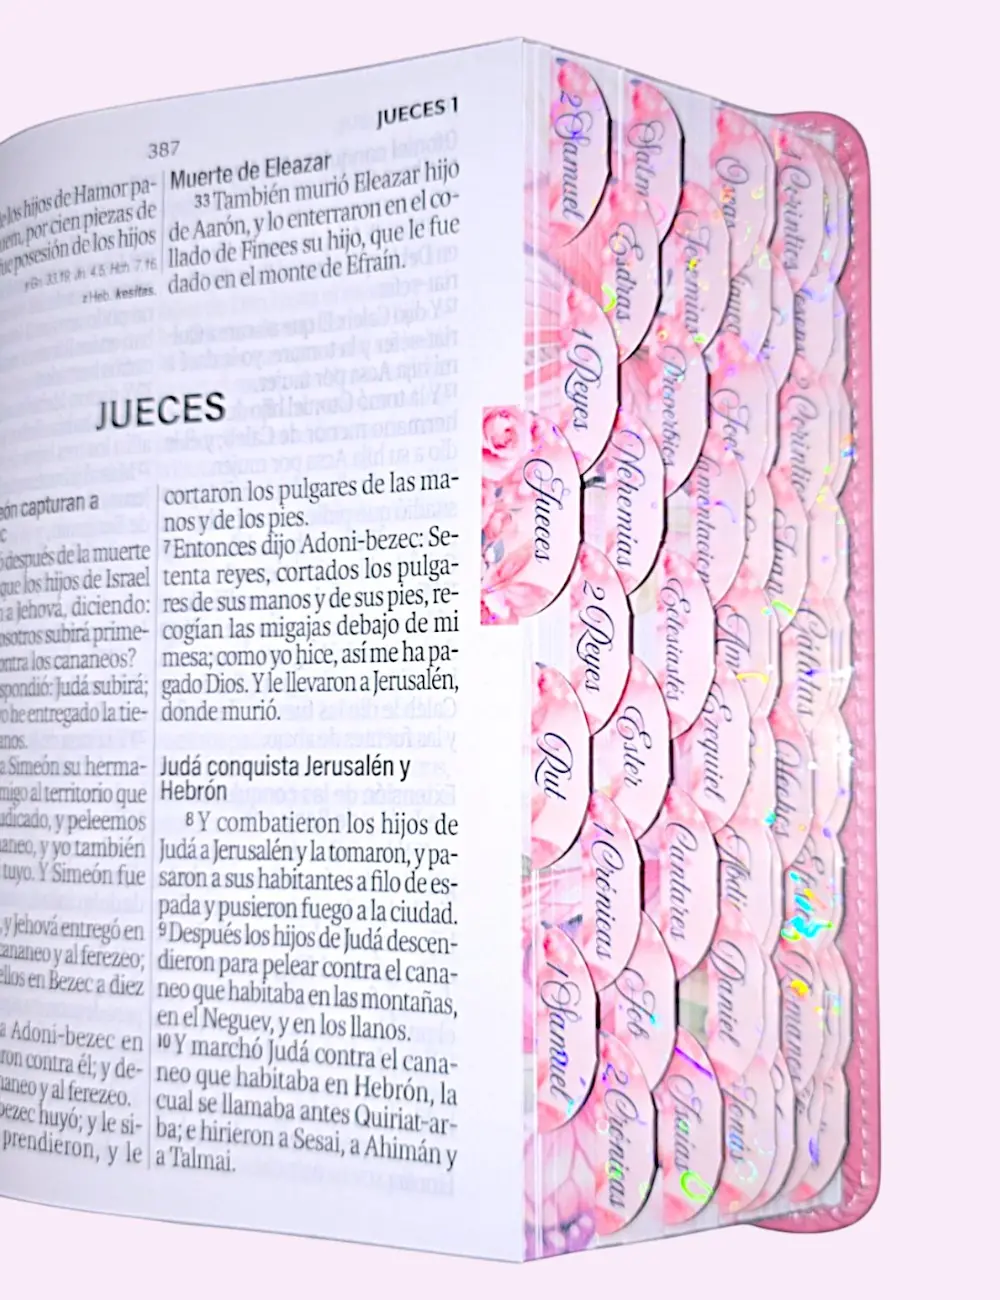 387
JUECES 1
los hijos de Hamor pa-
por cien piezas de
posesión de los hijos
Gn. 33.19; Jn. 4.5; Hch. 7.16.
Heb. kesitas.
Muerte de Eleazar
33 También murió Eleazar hijo
de Aarón, y lo enterraron en el co-
llado de Finees su hijo, que le fue
dado en el monte de Efraín.
JUECES
capturan a
después de la muerte
que los hijos de Israel
a Jehová, diciendo:
subirá prime-
los cananeos?
Judá subirá;
he entregado la tie-
a Simeón su herma-
al territorio que
y peleemos
y yo también
tuyo. Y Simeón fue
y Jehová entregó en
cananeo y al ferezeo;
en Bezec a diez
a Adoni-bezec en
contra él; y de-
y al ferezeo.
huyó; y le si-
prendieron, y le
cortaron los pulgares de las ma-
nos y de los pies.
7 Entonces dijo Adoni-bezec: Se-
tenta reyes, cortados los pulga-
res de sus manos y de sus pies, re-
cogían las migajas debajo de mi
mesa; como yo hice, así me ha pa-
gado Dios. Y le llevaron a Jerusalén,
donde murió.
Judá conquista Jerusalén y
Hebrón
8 Y combatieron los hijos de
Judá a Jerusalén y la tomaron, y pa-
saron a sus habitantes a filo de es-
pada y pusieron fuego a la ciudad.
9 Después los hijos de Judá descen-
dieron para pelear contra el cana-
neo que habitaba en las montañas,
en el Neguev, y en los llanos.
10 Y marchó Judá contra el cana-
neo que habitaba en Hebrón, la
cual se llamaba antes Quiriat-ar-
ba; e hirieron a Sesai, a Ahimán y
a Talmai.
Jueces
Rut
1 Samuel
2 Samuel
1 Reyes
2 Reyes
1 Crónicas
2 Crónicas
Esdras
Nehemias
Ester
Job
Proverbios
Eclesiastés
Cantares
Isaias
Jeremias
Ezequiel
Daniel
Oseas
Joel
Abdi
Jonás
1 Corintios
2 Corintio
Gálatas
Romanos